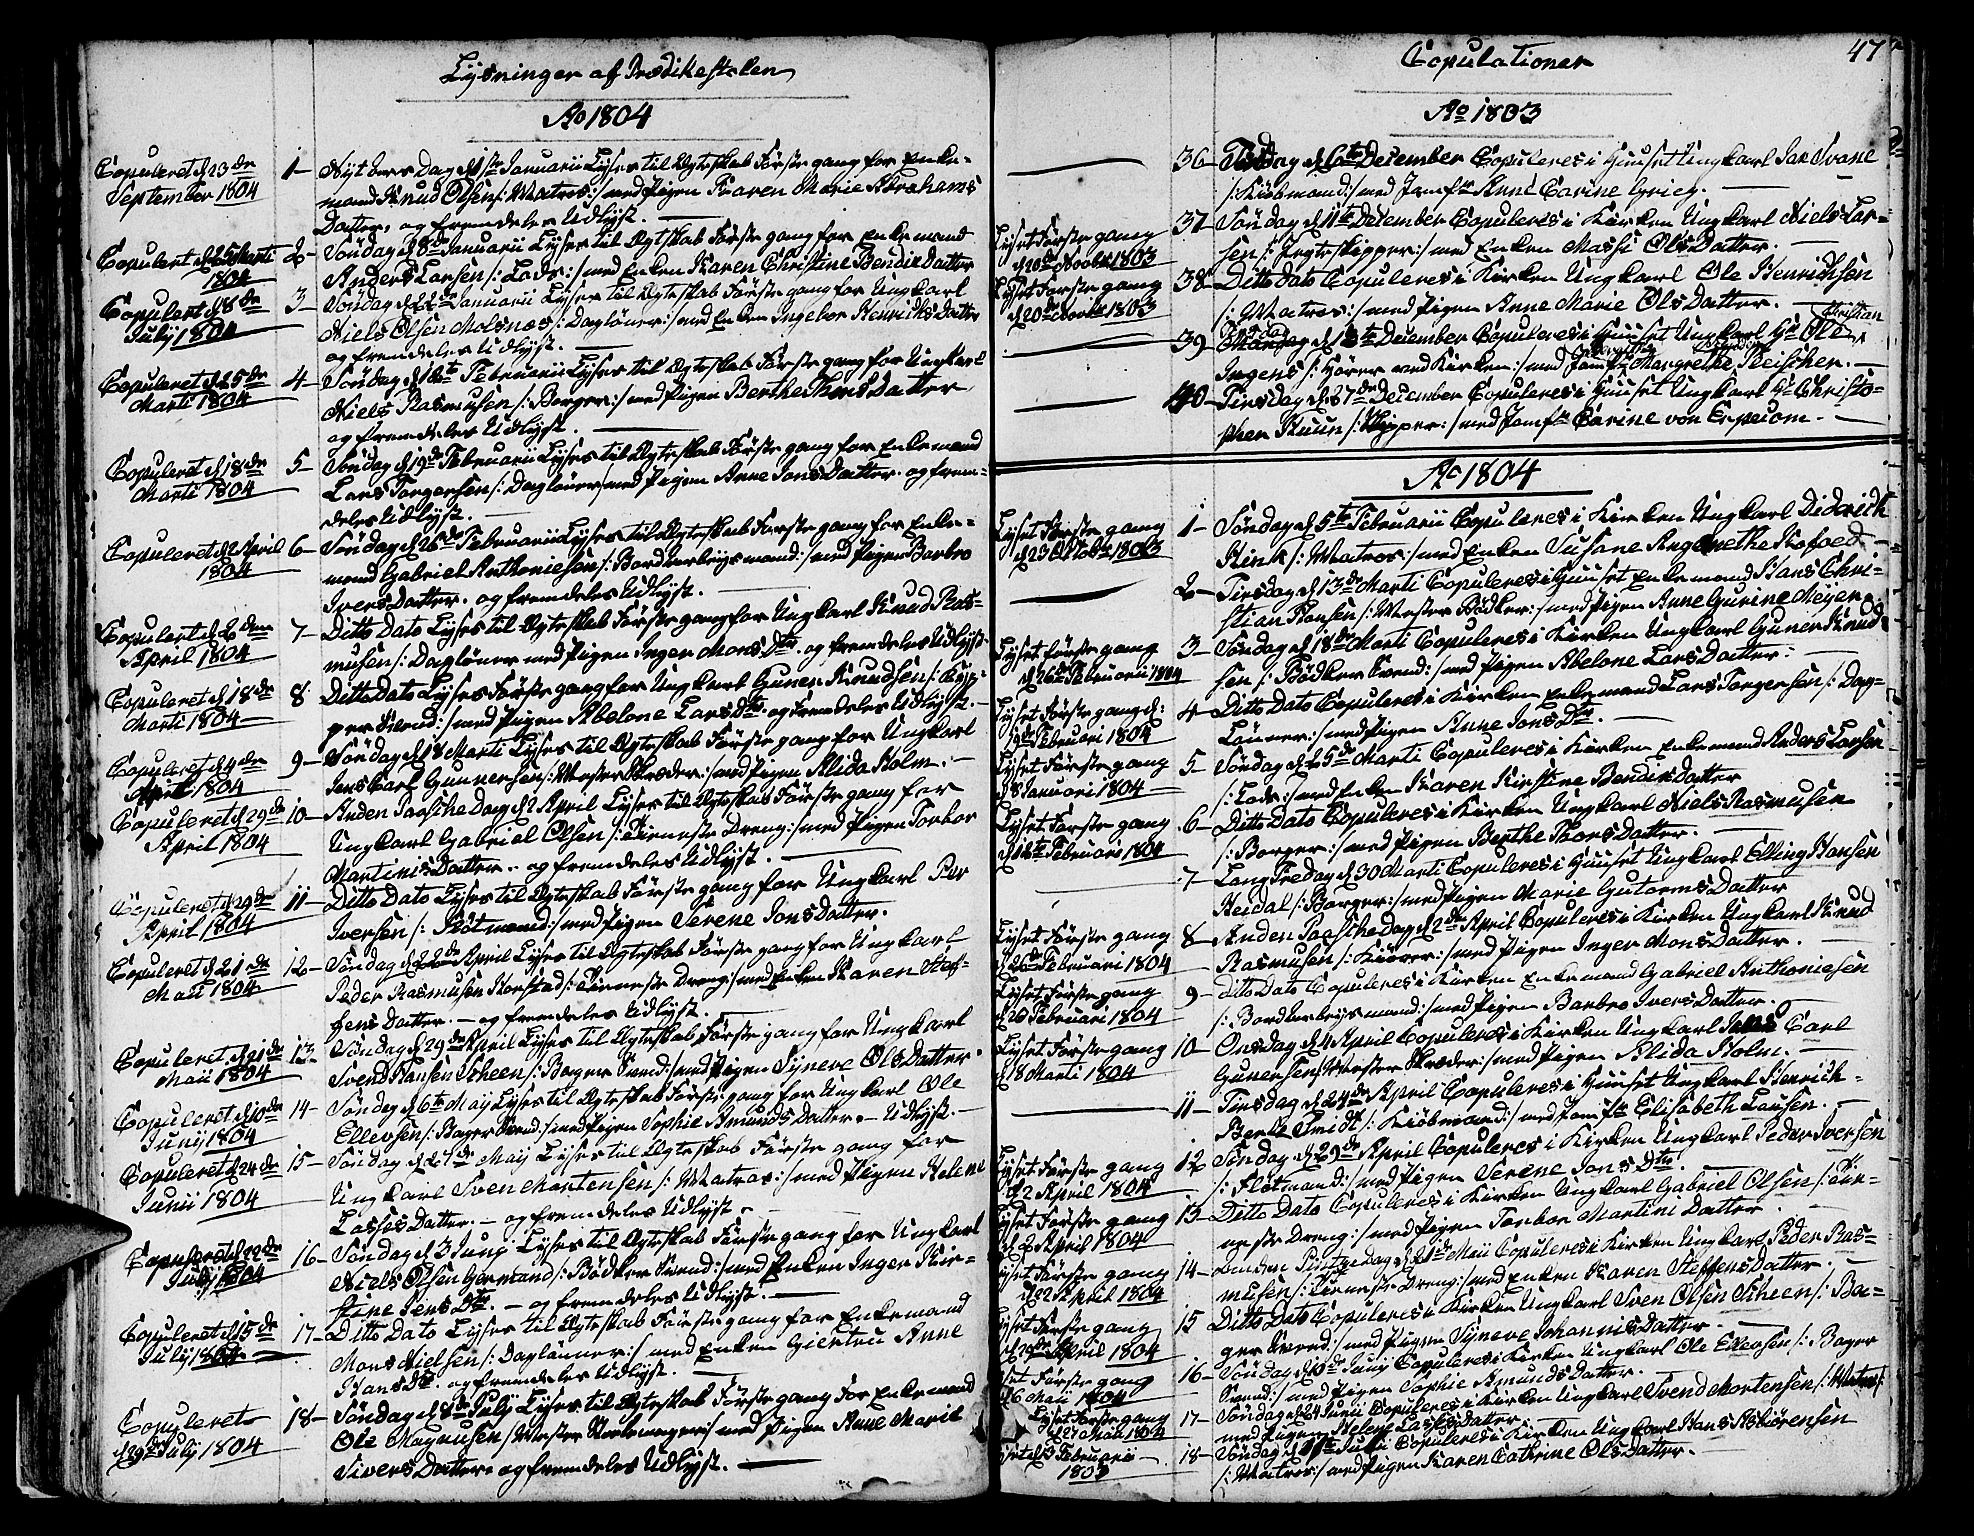 Lysninger af Prædikestolen
Ao 1804
Copuleret d. 23de
September 1804
1- Nyt Aars Dag d. 1ste Januarii Lyses til Ægteskab Første gang for Enke-
mand Knud Olsen /: Matros:/ med Pigen Karen Marie Abrahams
Datter, og fremdeles Udlyst.
Copulert d. 25 Marti
1804
2- Søndag d. 8de Januarii Lyses til Ægteskab Første gang for Enkemand
Anders Larsen /: Lods:/ med Enken Karen Christine Bendix Datter
Copulert d. 8de
Julij 1804
3- Søndag d. 22de Januarii Lyses til Ægteskab Første gang for Ungkarl
Niels Olsen Molsnæs /: Dagløner:/ med Enken Ingebor Henrichs Datter
og fremdeles Udlyst.
Copuleret d. 25de
Marti 1804
4- Søndag d. 12te Februarii Lyses til Ægteskab Første gang for Ungkarl
Niels Rasmusen /: Borger:/ med Pigen Berthe Thors Datter
og fremdeles Udlyst.
Copuleret d. 18de
Marti 1804
5- Søndag d. 19de Februarii Lyses til Ægteskab Første gang for Enkemand
Lars Torgersen /: Dagløner/ med Pigen Anne Jons Datter. og frem-
deles Udlyst.
Copuleret d. 2 April
1804
6- Søndag d. 26de Februarii Lyses til Ægteskab Første gang for Enke-
mand Gabriel Anthoniesen /: Bordarbeysmand:/ med Pigen Barbro
Ivers Datter. og fremdeles Udlyst.
Copulert d. 2den
April 1804
7- Ditto Dato Lyses til Ægteskab Første gang for Ungkarl Knud Ras-
musen /: Dagløner med Pigen Inger Mons Dtr. og fremdeles Udlyst.
Copuleret d. 18de
Marti 1804
8- Ditto Dato Lyses Første gang for Ungkarl Guner Knudsen /: Kyp-
per Svend:/ med Pigen Abelone Lars Dtr. og fremdeles Udlyst.
Copuleret d. 4de
April 1804
9- Søndag d. 18 Marti Lyses til Ægteskab Første gang for Ungkarl
Jens Carl Gunnersen /: Mester Skræder:/ med Pigen Alida Holm.
Copuleret d. 29de
April 1804
10- Anden Paasche Dag d. 2 April Lyses til Ægteskab Første gang for
Ungkarl Gabriel Olsen /: Tieneste Dreng:/ med Pigen Torbor
Martinis Datter. og fremdeles Udlyst.
Copuleret d. 29de
April 1804
11- Ditto Dato Lyses til Ægteskab Første gang for Ungkarl Per
Iversen /: Fløtmand:/ med Pigen Serene Jons Datter.
Copuleret d. 21de
Maii 1804
12- Søndag d. 22de April Lyses til Ægteskab Første gang for Ungkarl
Peder Rasmusen Harstad /: Tieneste Dreng:/ med Enken Karen Stef-
fens Datter. - og fremdeles Udlyst.
Copuleret d. 21de
Maii 1804
13- Søndag d. 29de April Lyses til Ægteskab Første gang for Ungkarl
Svend Hansen Scheen /: Bager Svend:/ med Pigen Synneve Ols Datter.
Copuleret d. 10de
Junij 1804
14- Søndag d. 6te Maij Lyses til Ægteskab Første gang for Ungkarl Ole
Ellevsen /: Bager Svend:/ med Pigen Sophie Amunds Datter. - Udlyst.
Copuleret d. 24de
Junii 1804
15- Søndag d. 27de Maij Lyses til Ægteskab Første gang for
Ungkarl Sven Mortensen /: Matros:/ med Pigen Helene
Lasses Datter. - og fremdeles Udlyst.
Copuleret d. 22de
Julij 1804
16- Søndag d. 3 Junij Lyses til Ægteskab Første gang for Ungkarl
Niels Olsen Germand /: Bødker Svend:/ med Enken Inger Kir-
stine Jens Dtr. - og fremdeles Udlyst.
Copuleret d. 15de
Julij 1804
17- Ditto Dato Lyses til Ægteskab Første gang for Enkemand
Mons Nielsen /: Daglønner:/ med Enken Giertru Anne
Hans Dtr. og fremdeles Udlyst.
Copuleret
d. 29de Julij 1804
18- Søndag d. 8de Julij Lyses til Ægteskab Første gang For Enkemand
Ole Magnusen /: Mester :/ med Pigen Anne Marie
Sivers Datter. og fremdeles Udlyst.
Copulationer
47
Ao 1803
36- Tirsdag d. 6te December Copuleres i Huuset Ungkarl Jan Svane
/: Kiøbmand:/ med Jomfr Anne Carine Grieg.
Lyset Første gang
d. 20de Novbr 1803
37- Søndag d. 11te December Copuleres i Kirken Ungkarl Niels Lar-
sen /: Jegteskipper:/ med Enken Massi Ols Datter.
Lyset Første gang
d. 20 Novbr 1803
38- Ditto Dato Copuleres i Kirken Ungkarl Ole Henrichsen
/: Matros:/ med Pigen Anne Marie Ols Datter.
39- Mandag d. 12te December Copuleres i Huuset Ungkarl Hr. Ole Christian
Ingens /: Hører ved Kirken:/ med Jomfr Margrethe Fleischer.
40- Tirsdag d. 27de December Copuleres i Huuset Ungkarl Hr. Christo-
pher Kuun /: Skipper:/ med Jomfr Carine von Erpecom.
Ao 1804
Lyset Første gang
d. 23 Octobr 1803
1- Søndag d. 5te Februarii Copuleres i Kirken Ungkarl Diderich
Hink /: Matros:/ med Enken Susane Angenethe Kofoed
2- Tirsdag d. 13de Marti Copuleres i Huuset Enkemand Hans Chri-
stian Hansen /: Mester Bødker:/ med Pigen Anne Gurine Meyer.
Lyset første gang
d. 26de Februarii 1804
3- Søndag d. 18de Marti Copuleres i Kirken Ungkarl Guner Knud-
sen /: Bødker Svend:/ med Pigen Abelone Lars Datter.
Lyset Første gang d:
19de Februari 1804
4- Ditto Dato Copuleres i Kirken Enkemand Lars Torgersen /: Dag-
Lønner:/ med Pigen Anne Jons Dtr.
Lyset Første gang
d. 8 Januari 1804
5- Søndag d. 25de Marti Copuleres i Kirken Enkemand Anders Larsen
/: Lods:/ med Enken Karen Kirstine Benders Datter
Lyset Første gang
d. 12te Februari 1804
6- Ditto Dato Copuleres i Kirken Ungkarl Niels Rasmusen
/: Borger:/ med Pigen Berthe Thors Datter.
7- Lang Fredag d. 30 Marti Copuleres i Huuset Ungkarl Elling Hansen
Heidal /: Borger:/ med Pigen Marie Gutorms Datter
Lyset Første gang
d. 26de Februari 1804
8- Anden Paasche Dag d. 2de April Copuleres i Kirken Ungkarl Knud
Rasmusen /: Kiører:/ med Pigen Inger Mons Datter.
Lyset Første gang
d. 26 Februari 1804
9- Ditto Dato Copuleres i Kirken Enkemand Gabriel Anthoniesen
/: Bordarbeysmand:/ med Pigen Barbro Ivers Datter.
Lyset Første gang
d. 18 Marti 1804
10- Onsdag d. 4 April Copuleres i Kirken Ungkarl Jens Carl
Gunersen /: Mester Skræder:/ med Pigen Alida Holm.
11- Tirsdag d. 24de April Copuleres i Huuset Ungkarl Henrich
Bentz Smidt /: Kiøbmand:/ med Jomfr Elisabeth Lausen.
Lyset Første gang
d. 2 April 1804
12- Søndag d. 29de April Copuleres i Kirken Ungkarl Peder Iversen
/: Fløtmand:/ med Pigen Serene Jons Dtr.
Lyset Første gang
d. 2 April 1804
13- Ditto Dato Copuleres i Kirken Ungkarl Gabriel Olsen /: Tie-
neste Dreng:/ med Pigen Torbor Martini Datter.
Lyset Første gang
d. 22 April 1804
14- Anden Pintze Dag d. 21de Maii Copuleres i Kirken Ungkarl Peder Ras-
musen /: Tieneste Dreng:/ med Enken Karen Steffens Datter.
Lyset Første gang
d. 29de April 1804
15 Ditto Dato Copuleres i Kirken Ungkarl Sven Olsen Scheen /: Ba-
ger Svend:/ med Pigen Synneve Johannis Datter.
Lyset Første gang
d. 6 Maii 1804
16- Søndag d. 10de Junij Copuleres i Kirken Ungkarl Ole Ellevsen /: Bager
Svend:/ med Pigen Sophie Amunds Datter.
Lyset Første gang
d. 27 Maii 1804
17- Søndag d. 24 Junii Copuleres i Kirken Ungkarl Svend Mortensen /: Matros:/
med Pigen Helene Lasses Datter
Lyset d. 3 Februarii
1803
18- Søndag d. 1ste Julii Copuleres i Kirken Ungkarl Hans Asbiørensen
/: Matros:/ med Pigen Karen Cathrine Ols Datter.